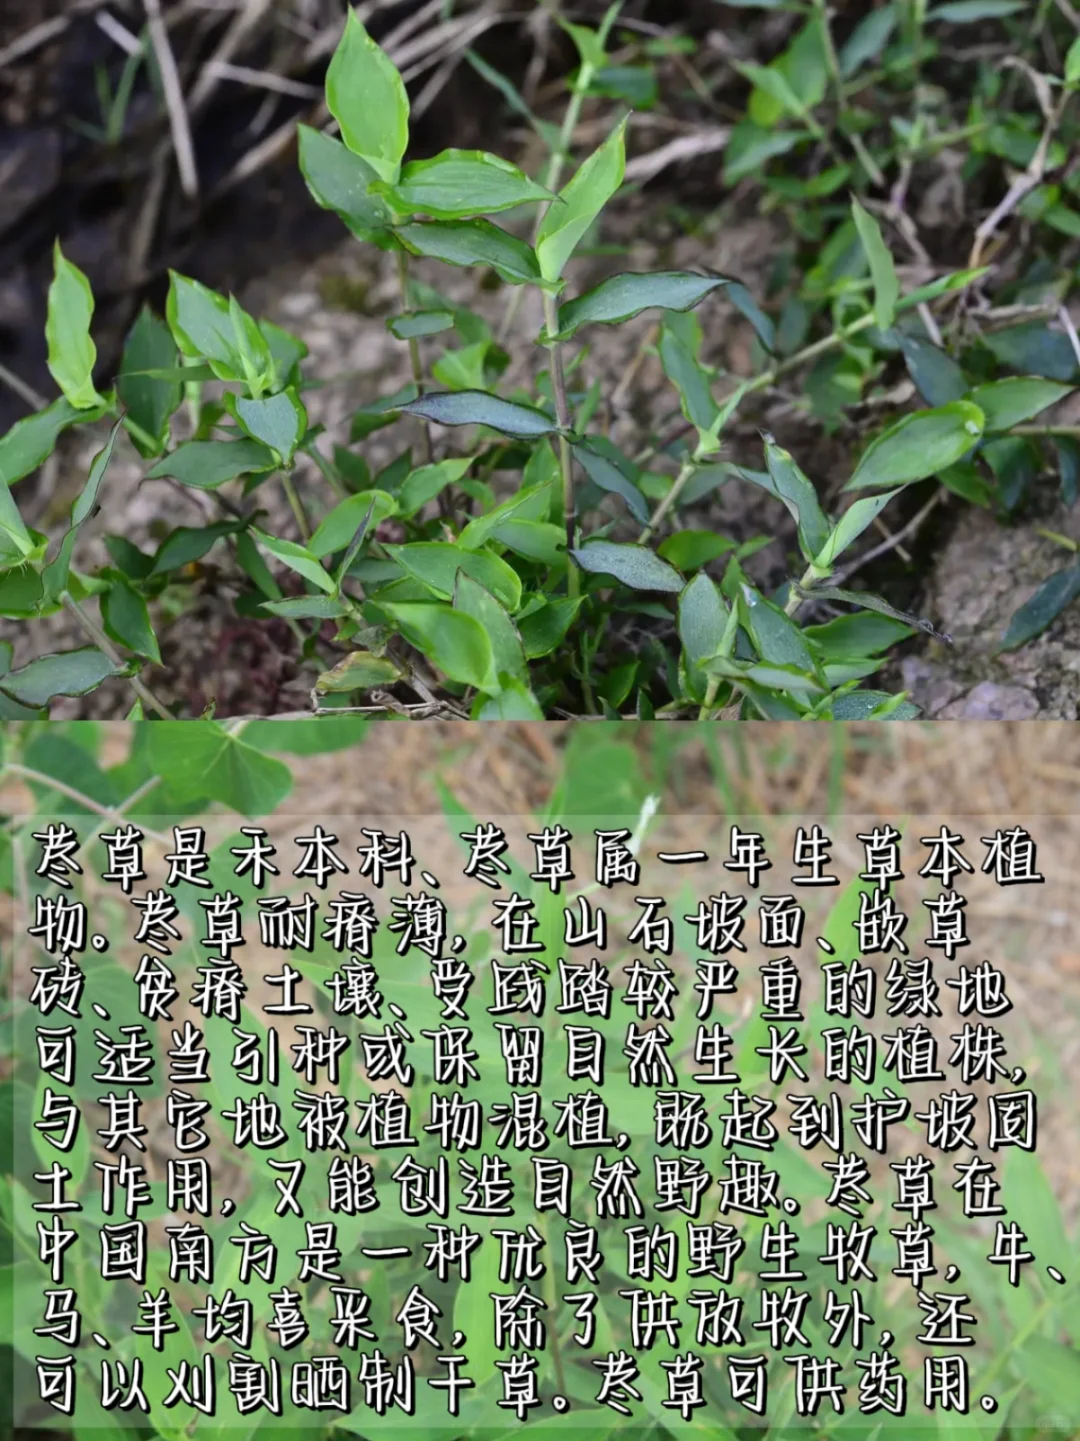 荩草是禾本科、荩草属一年生草本植
物。荩草耐瘠薄,在山石坡面、嵌草
砖、贫瘠土壤、受践踏较严重的绿地
可适当引种或保留自然生长的植株,
与其它地被植物混植,既起到护坡固
土作用,又能创造自然野趣。荩草在
中国南方是一种优良的野生牧草,牛、
马、羊均喜采食,除了供放牧外,还
可以刈割晒制干草。荩草可供药用。